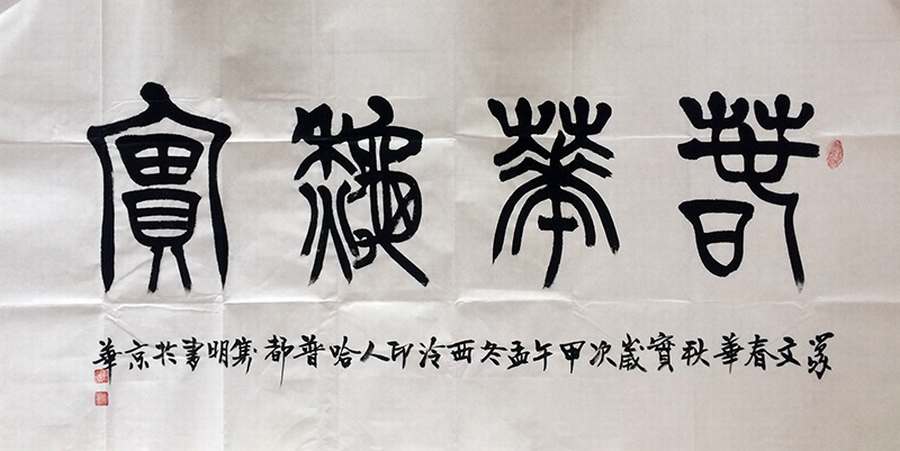 春華秋實
篆文春華秋實歲次甲午孟冬西泠印人哈普都隽明書於京華